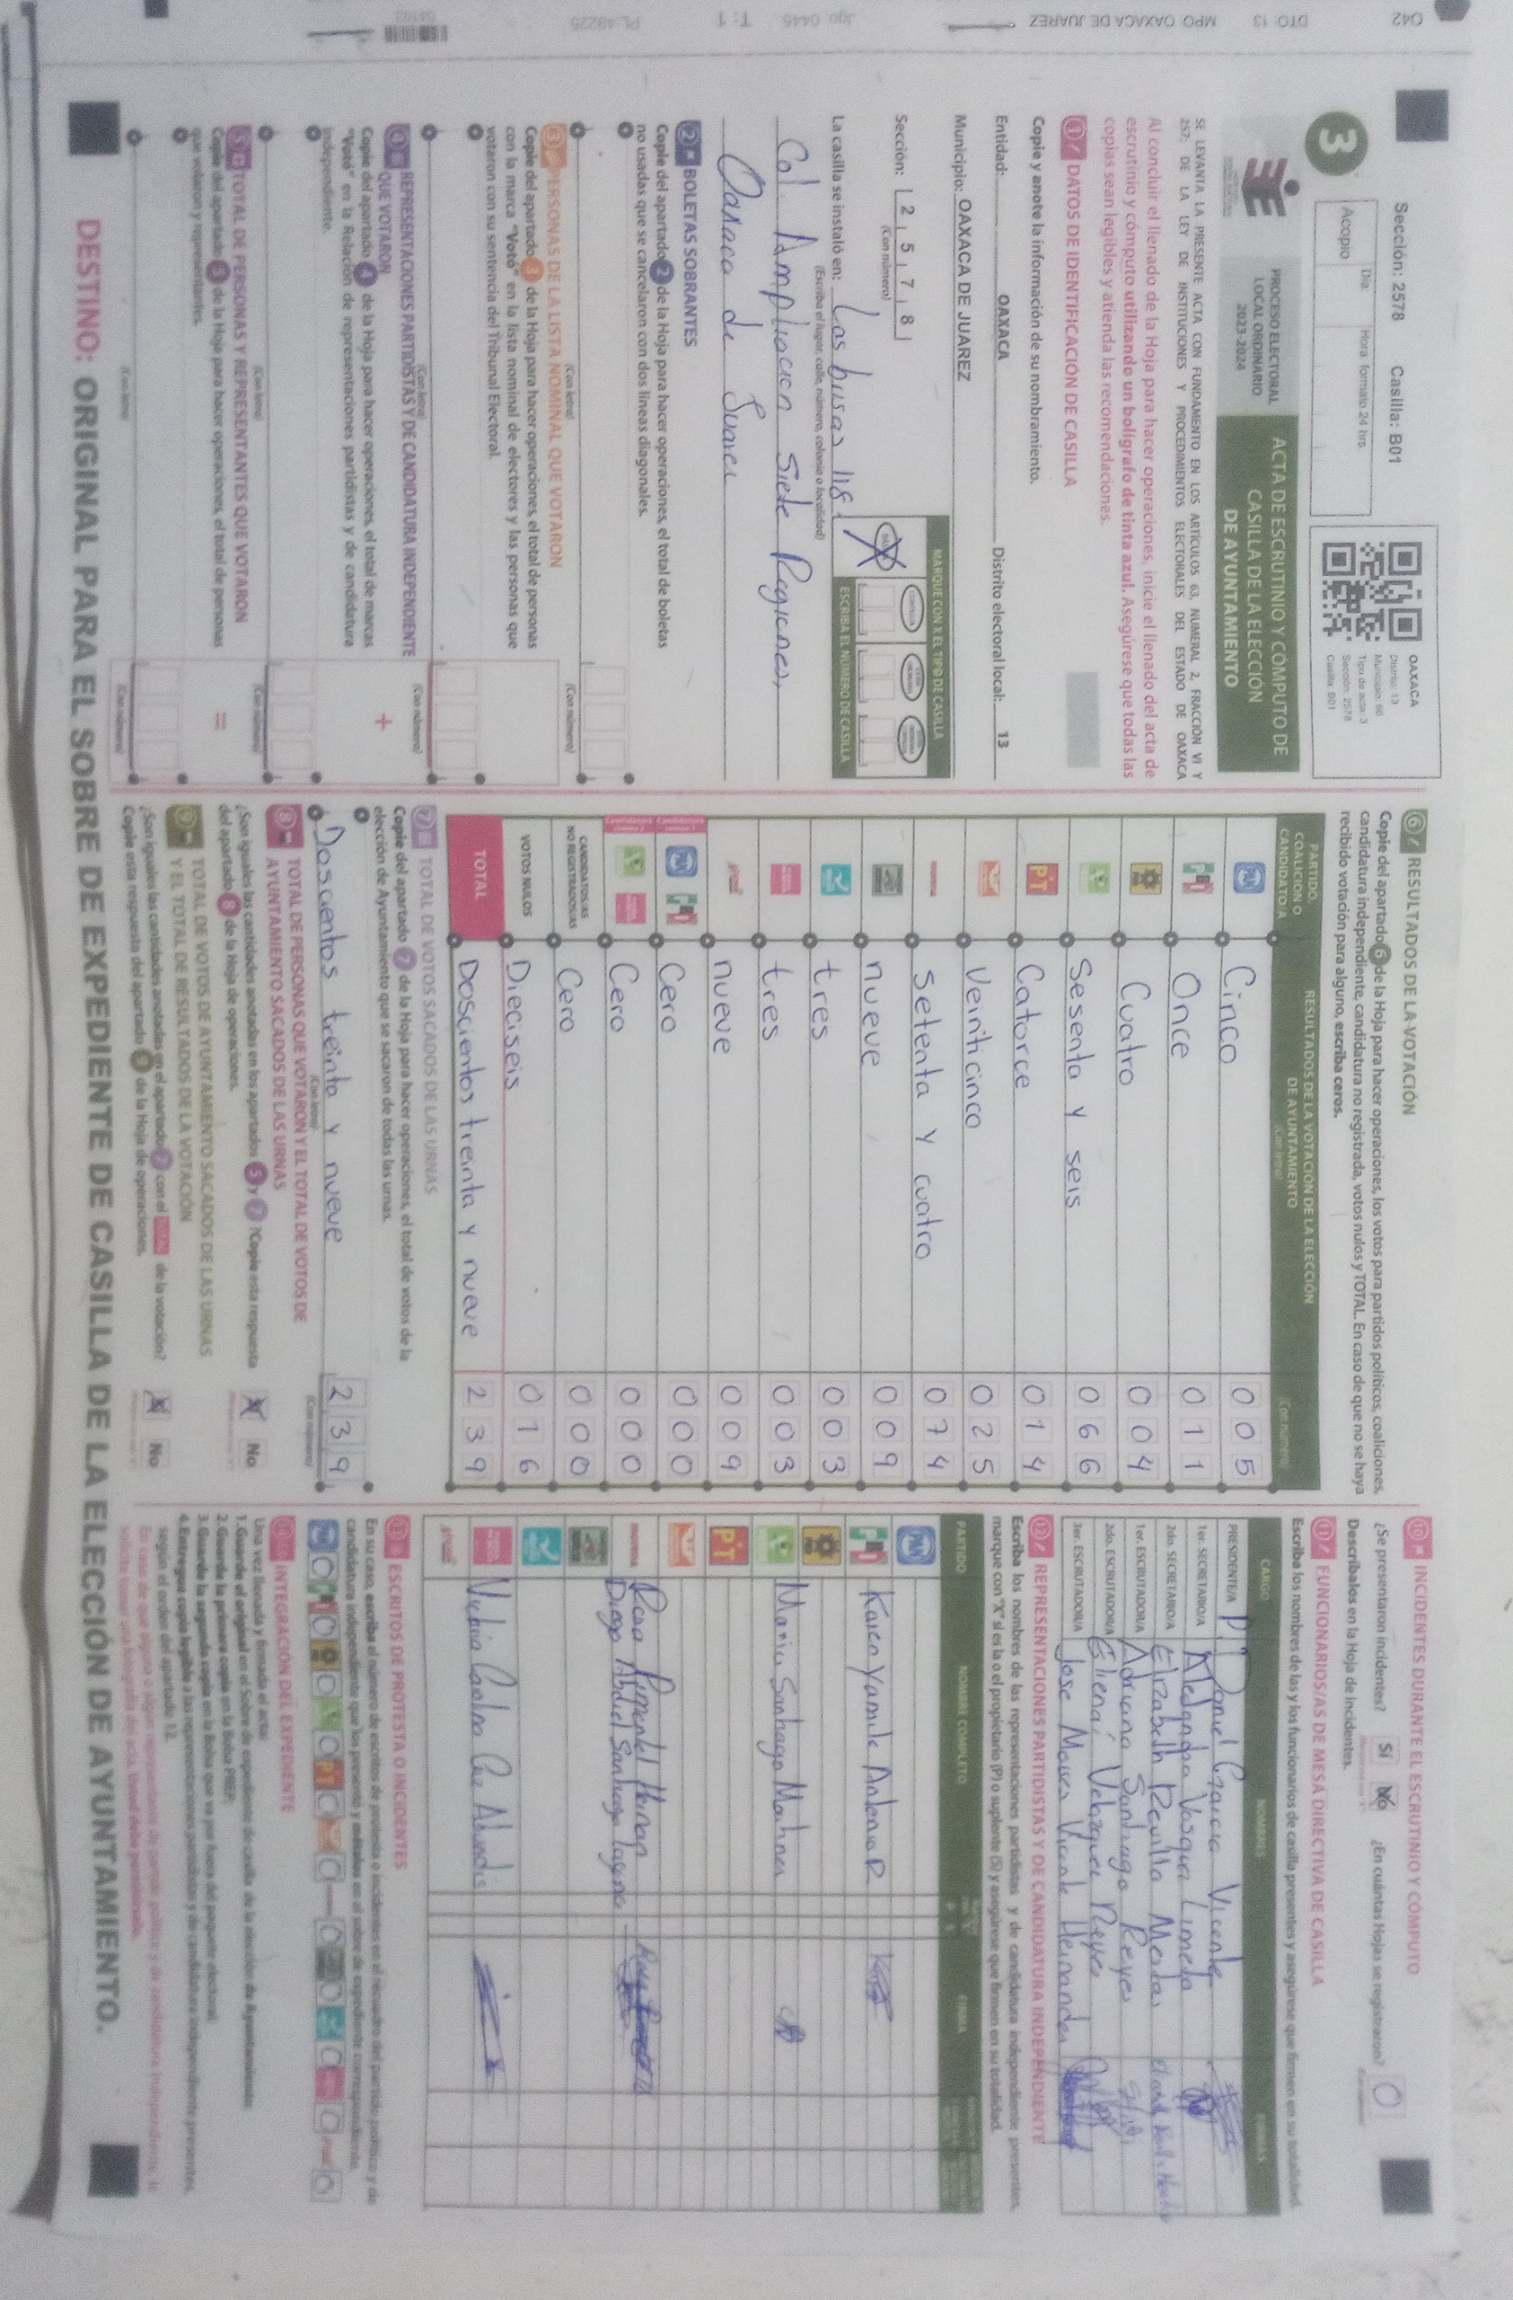 042 DTO 13 MPO OAXACA DE JUAREZ
Jgo. 0445 T: 1 PL:48225
Sección: 2578 Casilla: B01
3
Día Hora formato 24 hrs.
Acopio
OAXACA
Distrito: 13
Municipio: 66
Tipo de acta: 3
Sección: 2578
Casilla: B01
PROCESO ELECTORAL
LOCAL ORDINARIO
2023-2024
ACTA DE ESCRUTINIO Y CÓMPUTO DE
CASILLA DE LA ELECCIÓN
DE AYUNTAMIENTO
SE LEVANTA LA PRESENTE ACTA CON FUNDAMENTO EN LOS ARTÍCULOS 63, NUMERAL 2, FRACCIÓN VI Y
257; DE LA LEY DE INSTITUCIONES Y PROCEDIMIENTOS ELECTORALES DEL ESTADO DE OAXACA
Al concluir el llenado de la Hoja para hacer operaciones, inicie el llenado del acta de
escrutinio y cómputo utilizando un bolígrafo de tinta azul. Asegúrese que todas las
copias sean legibles y atienda las recomendaciones.
1 DATOS DE IDENTIFICACIÓN DE CASILLA
Copie y anote la información de su nombramiento.
Entidad: OAXACA Distrito electoral local: 13
Municipio: OAXACA DE JUAREZ
MARQUE CON X EL TIPO DE CASILLA
Sección: 2 5 7 8
(Con número)
ESCRIBA EL NÚMERO DE CASILLA
La casilla se instaló en: Las busas 118.
(Escriba el lugar, calle, número, colonia o localidad)
Col. Ampliacion Siete Regiones,
Oaxaca de Juarez
2 BOLETAS SOBRANTES
Copie del apartado 2 de la Hoja para hacer operaciones, el total de boletas
no usadas que se cancelaron con dos líneas diagonales.
(Con letra) (Con número)
3 PERSONAS DE LA LISTA NOMINAL QUE VOTARON
Copie del apartado 3 de la Hoja para hacer operaciones, el total de personas
con la marca "Votó" en la lista nominal de electores y las personas que
votaron con su sentencia del Tribunal Electoral.
(Con letra) (Con número)
4 REPRESENTACIONES PARTIDISTAS Y DE CANDIDATURA INDEPENDIENTE
QUE VOTARON +
Copie del apartado 4 de la Hoja para hacer operaciones, el total de marcas
"Votó" en la Relación de representaciones partidistas y de candidatura
independiente.
(Con letra) (Con número)
5 TOTAL DE PERSONAS Y REPRESENTANTES QUE VOTARON
Copie del apartado 5 de la Hoja para hacer operaciones, el total de personas =
que votaron y representantes.
(Con letra) (Con número)
6 RESULTADOS DE LA VOTACIÓN
Copie del apartado 6 de la Hoja para hacer operaciones, los votos para partidos políticos, coaliciones,
candidatura independiente, candidatura no registrada, votos nulos y TOTAL. En caso de que no se haya
recibido votación para alguno, escriba ceros.
PARTIDO, COALICIÓN O CANDIDATO/A
RESULTADOS DE LA VOTACIÓN DE LA ELECCIÓN
DE AYUNTAMIENTO
(Con letra) (Con número)
PAN Cinco 0 0 5
PRI Once 0 1 1
Cuatro 0 0 4
Sesenta y seis 0 6 6
PT Catorce 0 1 4
Veinticinco 0 2 5
morena Setenta y cuatro 0 7 4
nueve 0 0 9
tres 0 0 3
tres 0 0 3
nueve 0 0 9
PAN PRI Cero 0 0 0
Cero 0 0 0
CANDIDATOS/AS
NO REGISTRADOS/AS Cero 0 0 0
VOTOS NULOS Dieciseis 0 1 6
TOTAL Doscientos treinta y nueve 2 3 9
7 TOTAL DE VOTOS SACADOS DE LAS URNAS
Copie del apartado 7 de la Hoja para hacer operaciones, el total de votos de la
elección de Ayuntamiento que se sacaron de todas las urnas.
Doscientos treinta y nueve 2 3 9
(Con letra) (Con número)
8 TOTAL DE PERSONAS QUE VOTARON Y EL TOTAL DE VOTOS DE
AYUNTAMIENTO SACADOS DE LAS URNAS
¿Son iguales las cantidades anotadas en los apartados 5 y 7 ?Copie esta respuesta
del apartado 8 de la Hoja de operaciones. No
9 TOTAL DE VOTOS DE AYUNTAMIENTO SACADOS DE LAS URNAS
Y EL TOTAL DE RESULTADOS DE LA VOTACIÓN
¿Son iguales las cantidades anotadas en el apartado 7 con el TOTAL de la votación?
Copie esta respuesta del apartado 9 de la Hoja de operaciones. No
10 INCIDENTES DURANTE EL ESCRUTINIO Y CÓMPUTO
¿Se presentaron incidentes? Sí No ¿En cuántas Hojas se registraron? 0
Descríbalos en la Hoja de Incidentes.
11 FUNCIONARIOS/AS DE MESA DIRECTIVA DE CASILLA
Escriba los nombres de las y los funcionarios de casilla presentes y asegúrese que firmen en su totalidad.
CARGO NOMBRES FIRMAS
PRESIDENTE/A Daniel Garcia Vicente
1er. SECRETARIO/A Alejandra Vasquez Limeta
2do. SECRETARIO/A Elizabeth Revilla Mentas
1er. ESCRUTADOR/A Adriana Santiago Reyes
2do. ESCRUTADOR/A Elienai Velazquez Reyes
3er. ESCRUTADOR/A Jose Moises Vicente Hernandez
12 REPRESENTACIONES PARTIDISTAS Y DE CANDIDATURA INDEPENDIENTE
Escriba los nombres de las representaciones partidistas y de candidatura independiente presentes,
marque con "X" si es la o el propietario (P) o suplente (S) y asegúrese que firmen en su totalidad.
PARTIDO NOMBRE COMPLETO FIRMA
PAN
PRI Karen Yamile Antonio R
Maria Santiago Martinez
PT
morena Rosa Pimentel Heman
Diego Abdiel Santiago Laguna
13 ESCRITOS DE PROTESTA O INCIDENTES
En su caso, escriba el número de escritos de protesta o incidentes en el recuadro del partido político y de
candidatura independiente que los presentó y métalos en el sobre de expediente correspondiente.
14 INTEGRACIÓN DEL EXPEDIENTE
Una vez llenada y firmada el acta:
1.Guarde el original en el Sobre de expediente de casilla de la elección de Ayuntamiento.
2.Guarde la primera copia en la Bolsa PREP.
3.Guarde la segunda copia en la Bolsa que va por fuera del paquete electoral.
4.Entregue copia legible a las representaciones partidistas y de candidatura independiente presentes,
según el orden del apartado 12.
DESTINO: ORIGINAL PARA EL SOBRE DE EXPEDIENTE DE CASILLA DE LA ELECCIÓN DE AYUNTAMIENTO.